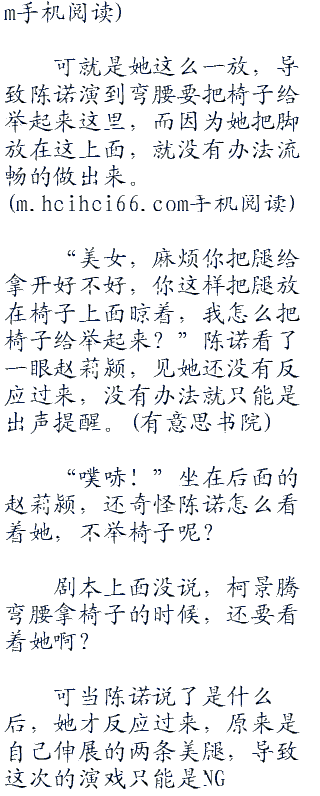 m手机阅读)
可就是她这么一放，导
致陈诺演到弯腰要把椅子给
举起来这里，而因为她把脚
放在这上面，就没有办法流
畅的做出来。
(m.hcihci66.com手机阅读)
“美女，麻烦你把腿给
拿开好不好，你这样把腿放
在椅子上面晾着，我怎么把
椅子给举起来？”陈诺看了
一眼赵莉颍，见她还没有反
应过来，没有办法就只能是
出声提醒。(有意思书院)
“噗哧！”坐在后面的
赵莉颍，还奇怪陈诺怎么看
着她，不举椅子呢？
剧本上面没说，柯景腾
弯腰拿椅子的时候，还要看
着她啊？
可当陈诺说了是什么
后，她才反应过来，原来是
自己伸展的两条美腿，导致
这次的演戏只能是NG